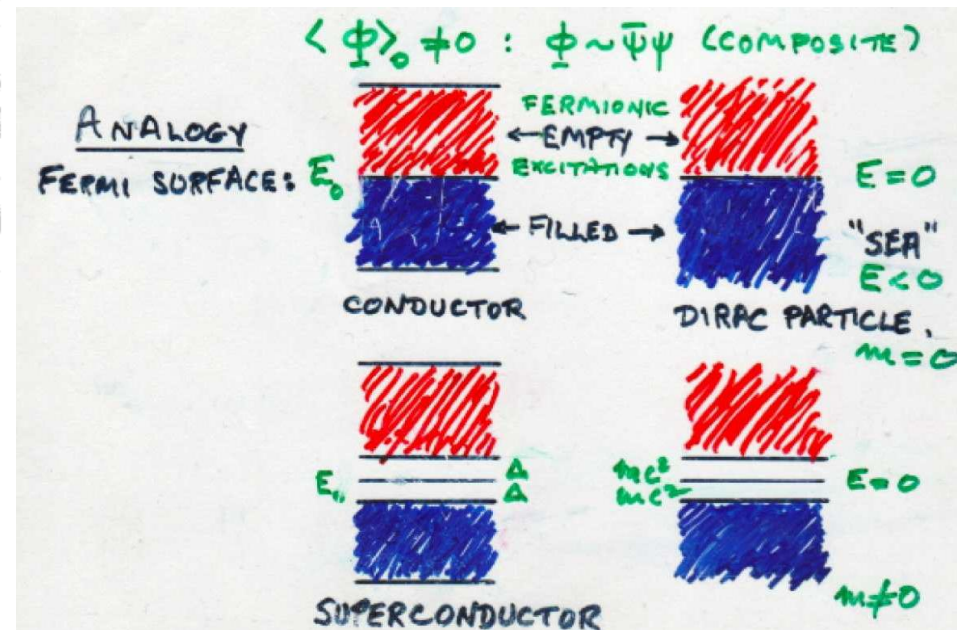 ⟨Φ⟩₀ ≠ 0 : Φ ~ ψ̄ψ (COMPOSITE)
ANALOGY
FERMI SURFACE: E₀
FERMIONIC
← EMPTY →
EXCITATIONS
E = 0
← FILLED →
"SEA"
E < 0
CONDUCTOR
DIRAC PARTICLE.
m = 0
Δ
mc²
E₀
Δ
mc²
E = 0
m ≠ 0
SUPERCONDUCTOR